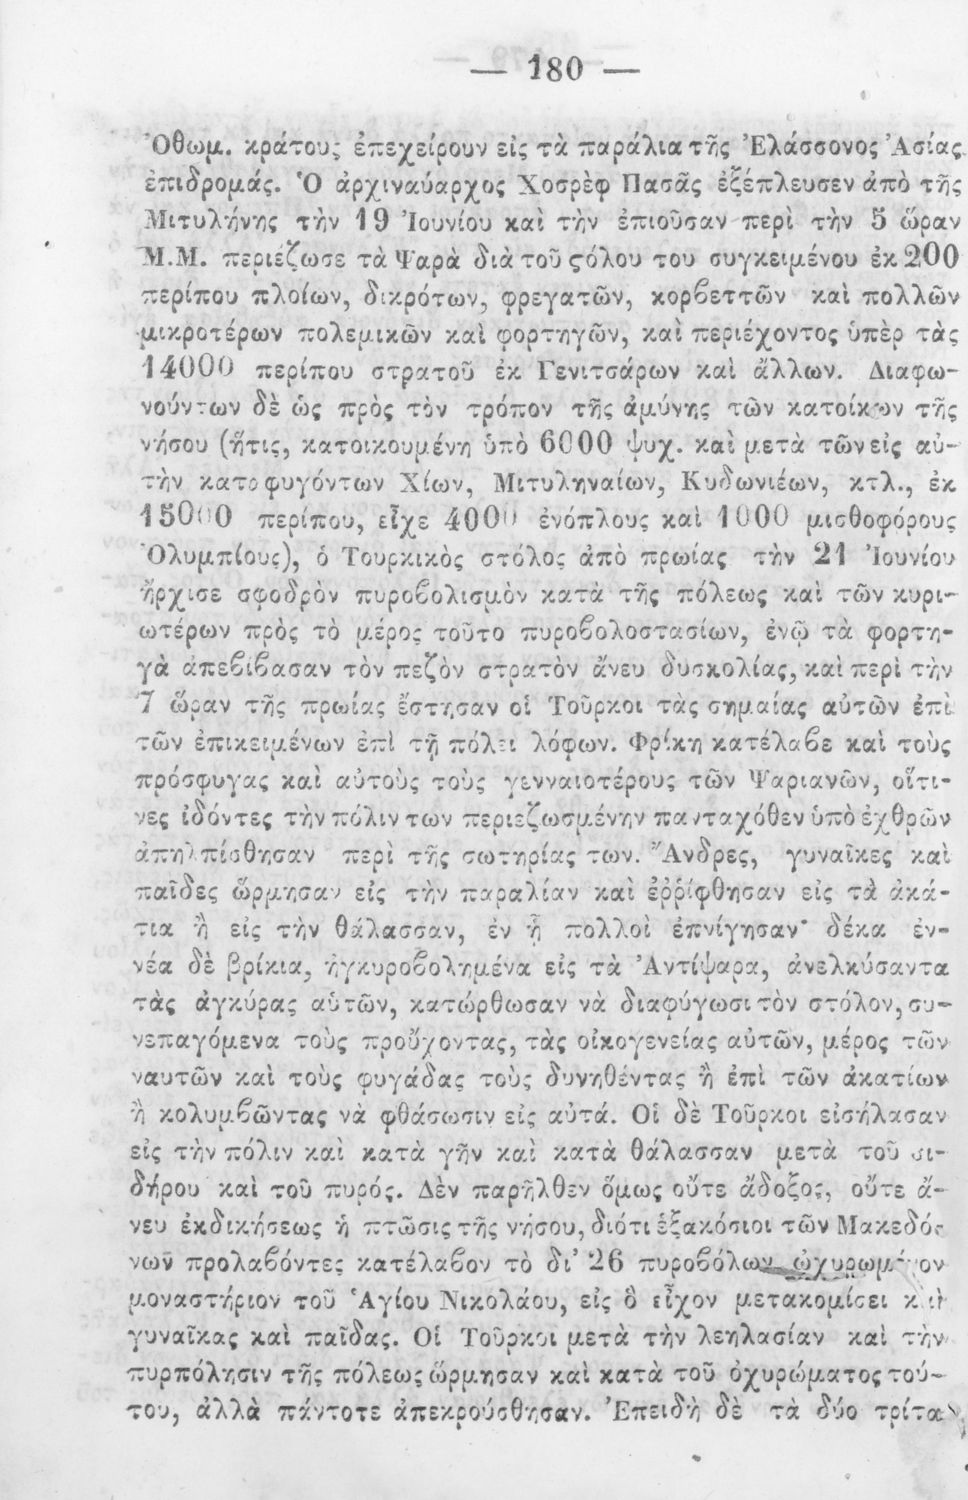 — 180 —
Ὀθωμ. κράτους ἐπεχείρουν εἰς τὰ παράλια τῆς Ἐλάσσονος Ἀσίας
ἐπιδρομάς. Ὁ ἀρχιναύαρχος Χοσρὲφ Πασᾶς ἐξέπλευσεν ἀπὸ τῆς
Μιτυλήνης τὴν 19 Ἰουνίου καὶ τὴν ἐπιοῦσαν περὶ τὴν 5 ὥραν
Μ.Μ. περιέζωσε τὰ Ψαρὰ διὰ τοῦ ϛόλου του συγκειμένου ἐκ 200
περίπου πλοίων, δικρότων, φρεγατῶν, κορβεττῶν καὶ πολλῶν
μικροτέρων πολεμικῶν καὶ φορτηγῶν, καὶ περιέχοντος ὑπὲρ τὰς
14000 περίπου στρατοῦ ἐκ Γενιτσάρων καὶ ἄλλων. Διαφω-
νούντων δὲ ὡς πρὸς τὸν τρόπον τῆς ἀμύνης τῶν κατοίκων τῆς
νήσου (ἥτις, κατοικουμένη ὑπὸ 6000 ψυχ. καὶ μετὰ τῶν εἰς αὐ-
τὴν καταφυγόντων Χίων, Μιτυληναίων, Κυδωνιέων, κτλ., ἐκ
15000 περίπου, εἶχε 4000 ἐνόπλους καὶ 1000 μισθοφόρους
Ὀλυμπίους), ὁ Τουρκικὸς στόλος ἀπὸ πρωίας τὴν 21 Ἰουνίου
ἤρχισε σφοδρὸν πυροβολισμὸν κατὰ τῆς πόλεως καὶ τῶν κυρι-
ωτέρων πρὸς τὸ μέρος τοῦτο πυροβολοστασίων, ἐνῷ τὰ φορτη-
γὰ ἀπεβίβασαν τὸν πεζὸν στρατὸν ἄνευ δυσκολίας, καὶ περὶ τὴν
7 ὥραν τῆς πρωίας ἔστησαν οἱ Τοῦρκοι τὰς σημαίας αὐτῶν ἐπὶ
τῶν ἐπικειμένων ἐπὶ τῇ πόλει λόφων. Φρίκη κατέλαβε καὶ τοὺς
πρόσφυγας καὶ αὐτοὺς τοὺς γενναιοτέρους τῶν Ψαριανῶν, οἵτι-
νες ἰδόντες τὴν πόλιν των περιεζωσμένην πανταχόθεν ὑπὸ ἐχθρῶν
ἀπηλπίσθησαν περὶ τῆς σωτηρίας των. Ἄνδρες, γυναῖκες καὶ
παῖδες ὥρμησαν εἰς τὴν παραλίαν καὶ ἐῤῥίφθησαν εἰς τὰ ἀκά-
τια ἢ εἰς τὴν θάλασσαν, ἐν ᾗ πολλοὶ ἐπνίγησαν· δέκα ἐν-
νέα δὲ βρίκια, ἠγκυροβολημένα εἰς τὰ Ἀντίψαρα, ἀνελκύσαντα
τὰς ἀγκύρας αὑτῶν, κατώρθωσαν νὰ διαφύγωσι τὸν στόλον, συ-
νεπαγόμενα τοὺς προὔχοντας, τὰς οἰκογενείας αὐτῶν, μέρος τῶν
ναυτῶν καὶ τοὺς φυγάδας τοὺς δυνηθέντας ἢ ἐπὶ τῶν ἀκατίων
ἢ κολυμβῶντας νὰ φθάσωσιν εἰς αὐτά. Οἱ δὲ Τοῦρκοι εἰσήλασαν
εἰς τὴν πόλιν καὶ κατὰ γῆν καὶ κατὰ θάλασσαν μετὰ τοῦ σι-
δήρου καὶ τοῦ πυρός. Δὲν παρῆλθεν ὅμως οὔτε ἄδοξος, οὔτε ἄ-
νευ ἐκδικήσεως ἡ πτῶσις τῆς νήσου, διότι ἑξακόσιοι τῶν Μακεδό-
νων προλαβόντες κατέλαβον τὸ δι' 26 πυροβόλων ὠχυρωμένον
μοναστήριον τοῦ Ἁγίου Νικολάου, εἰς ὃ εἶχον μετακομίσει καὶ
γυναῖκας καὶ παῖδας. Οἱ Τοῦρκοι μετὰ τὴν λεηλασίαν καὶ τὴν
πυρπόλησιν τῆς πόλεως ὥρμησαν καὶ κατὰ τοῦ ὀχυρώματος τού-
του, ἀλλὰ πάντοτε ἀπεκρούσθησαν. Ἐπειδὴ δὲ τὰ δύο τρίτα